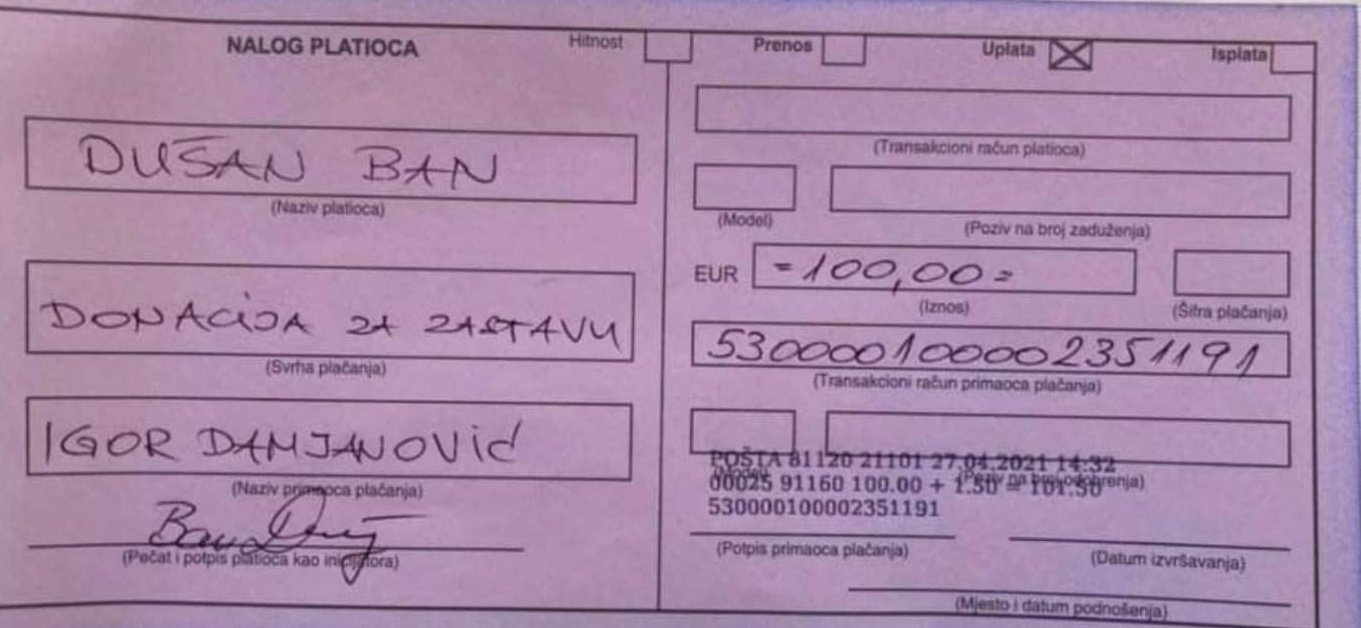 NALOG PLATIOCA
Hitnost
Prenos
Uplata
Isplata
DUŠAN BAN
(Naziv platioca)
DONACIJA ZA ZASTAVU
(Svrha plaćanja)
IGOR DAMJANOVIĆ
(Naziv primaoca plaćanja)
(Pečat i potpis platioca kao inicijatora)
(Transakcioni račun platioca)
(Model)
(Poziv na broj zaduženja)
EUR =100,00=
(Iznos)
(Šifra plaćanja)
530000100002351191
(Transakcioni račun primaoca plaćanja)
POŠTA 81120 21101 27.04.2021 14:32
(Model)
(Poziv na broj odobrenja)
00025 91160 100.00 + 1.50 = 101.50
530000100002351191
(Potpis primaoca plaćanja)
(Datum izvršavanja)
(Mjesto i datum podnošenja)